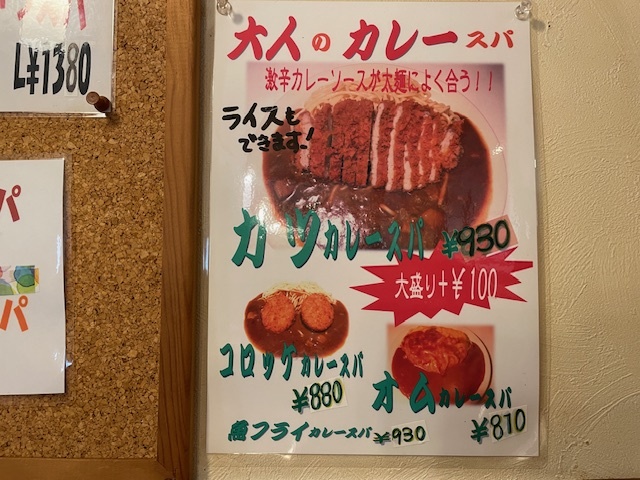 L¥1380
パ
パ
大人のカレースパ
激辛カレーソースが太麺によく合う!!
ライスも
できます!
カツカレースパ ¥930
大盛り+¥100
コロッケカレースパ
¥880
オムカレースパ
¥810
フライカレースパ ¥930